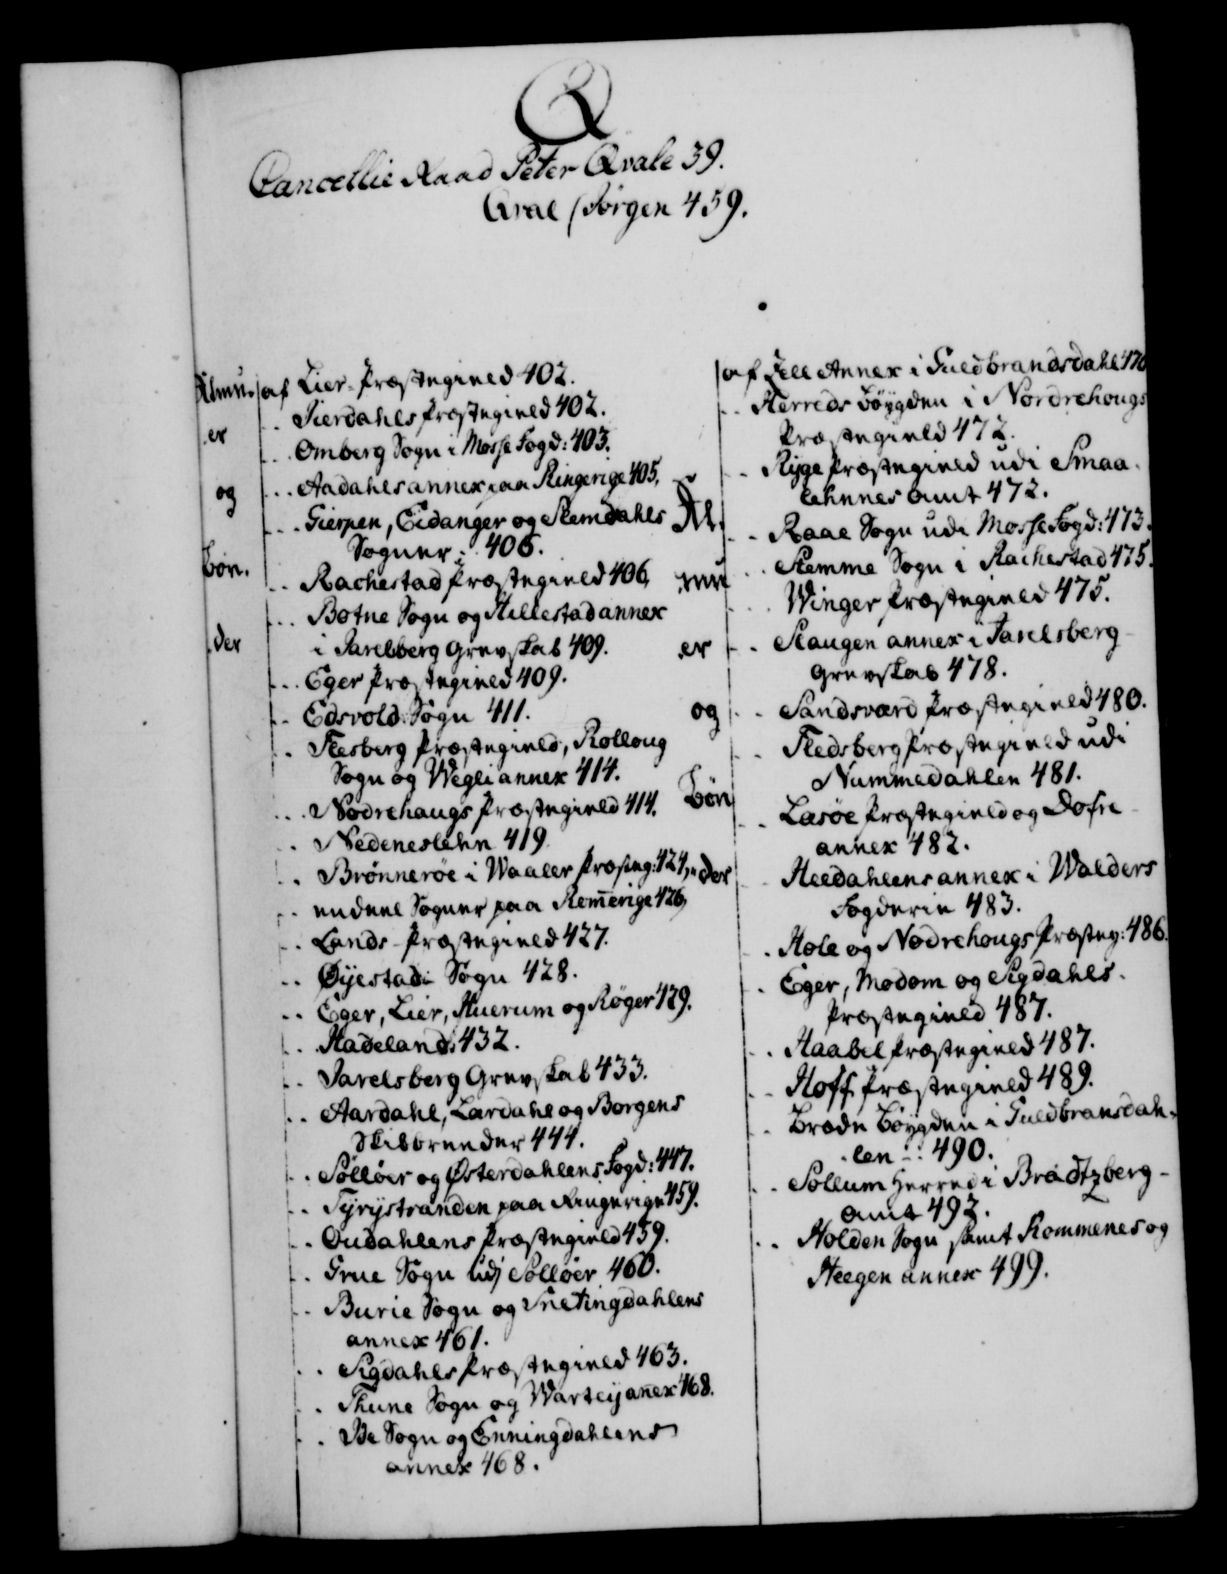 Q
Cancellie Raad Peter Qvale 39.
Qval (Jørgen 459.
Almu-
er
og
Bøn.
der
af Lier-Præstegield 402.
.. Tierdahls Præstegield 402.
... Omberg Sogn i Mosse Fogd: 403.
... Aadahls annex paa Ringerige 405.
... Gierpen, Eidanger og Slemdahls
Sogner 406.
.. Rachestad Præstegield 406.
... Botne Sogn og Hillestad annex
i Jarlsberg Grevskab 409.
... Eger Præstegield 409.
.. Edsvold Sogn 411.
.. Flesberg Præstegield, Rolloug
Sogn og Wegli annex 414.
... Nødrehaugs Præstegield 414.
.. Nedeneslehn 419.
.. Brønnerøe i Waaler Præsteg: 424.
.. endeel Sogner paa Remerige 426.
.. Lands-Præstegield 427.
.. Øyestad Sogn 428.
.. Eger, Lier, Huerum og Røger 429.
.. Hadeland: 432.
.. Jarelsberg Grevskab 433.
.. Aardahl, Lærdahl og Borgens
Skibbreeder 444.
.. Solløer og Østerdahlens Fogd: 447.
.. Tyrystranden paa Ringerige 459.
.. Oudahlens Præstegield 459.
.. Grue Sogn udj Solløer 460.
.. Burie Sogn og Snetingdahlens
annex 461.
.. Sigdahls Præstegield 463.
.. Thune Sogn og Warteij annex 468.
.. Be Sogn og Enningdahlens
annex 468.
Al-
mu
er
og
Bøn
der
af Zell Annex i Guldbrandsdahl 470
.. Herreds Böygden i Nordrehougs
Præstegield 472.
.. Ryge Præstegield udi Smaa-
lehnnes Amt 472.
.. Raae Sogn udi Mosse Fogd: 473.
.. Stemme Sogn i Rachestad 475.
... Winger Præstegield 475.
.. Slaugen annex i Jarelsberg-
Grevskab 478.
.. Sandsværd Præstegield 480.
.. Fledsberg Præstegield udi
Nummedahlen 481.
.. Lasøe Præstegield og Dofre-
annex 482.
.. Heedahlens annex i Walders
Fogderie 483.
.. Hole og Nødrehougs Præsteg: 486.
.. Eger, Modom og Sigdahls-
Præstegield 487.
.. Haabel Præstegield 487.
.. Hoff Præstegield 489.
.. Brøde Böygden i Guldbransdah-
len 490.
.. Sollum Herred i Bradtzberg-
Amt 492.
.. Holden Sogn samt Rommenes og
Heegen annex 499.